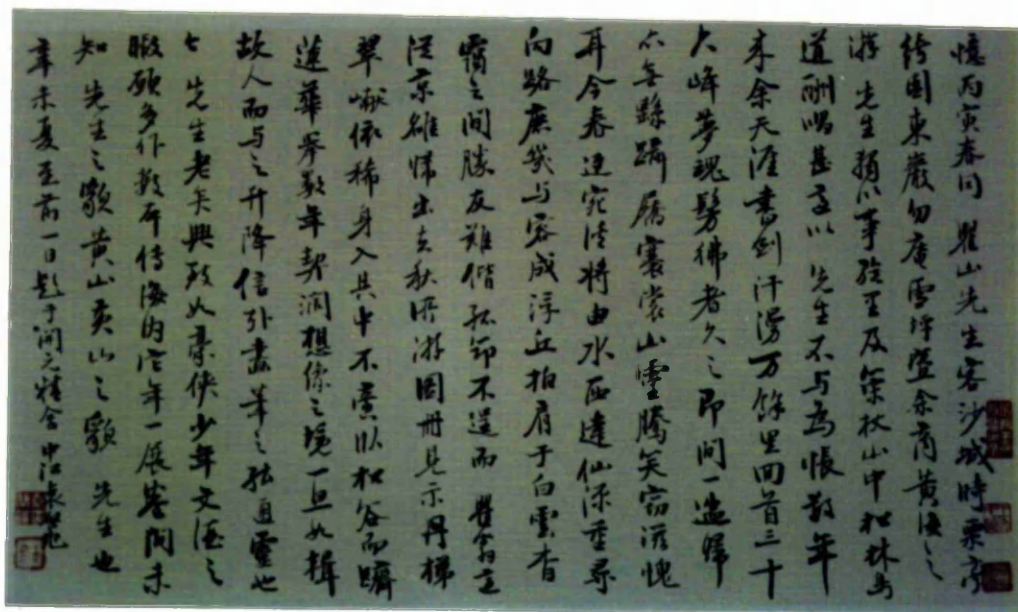 憶丙寅春同 瞿山先生客沙城時栗亭
綺園東巖勿庵雪坪暨余商黄海之
游 先生猶以事 及策杖山中松林鳥
道酬唱甚適以 先生不与為悵數年
来余天涯書劍汗漫万餘里回首三十
六峰夢魂髣彿者久之即間一遄歸
亦無繇躡屩褰裳山靈騰笑竊滋愧
耳今春連宛陵將由水西達仙源重尋
向路庶幾与容成浮丘拍肩于白雲香
靄之間勝友難偕孤節不逞而 瞿翁
從 出去秋所游圖冊見示丹梯
翠巘依稀身入其中不啻臥松谷而躋
蓮華峯數年契闊想像之境一旦如揖
故人而与之升降信 畫筆之 通靈也
先生老矣興致如豪俠少年文酒之
暇願多作數本傳海内它年一展卷間未
知 先生之貌黄山黄山之貌 先生也
辛未夏至前一日題于開元精舍 中江袁啓旭